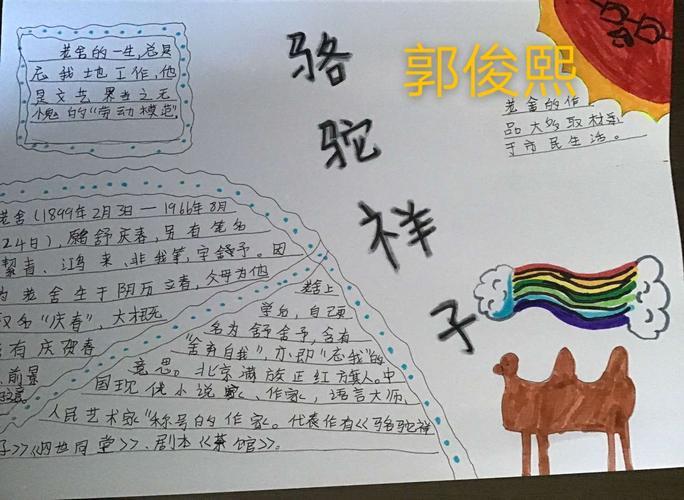 老舍的一生,总是
忘我地工作,他
是文艺界当之无
愧的"劳动模范"。
骆
驼
祥
子
郭俊熙
老舍的作
品大多取材
于市民生活。
老舍(1899年2月3日—1966年8月
24日),原名舒庆春,另有笔名
絜青、鸿来、非我等,字舍予。因
为老舍生于阴历立春,父母为他
取名"庆春",大概
含有庆贺春
前景
老舍上
学后,自己更
名为舒舍予,含有
"舍弃自我",亦即"忘我"的
意思。北京满族正红旗人。中
国现代小说家、作家,语言大师、
人民艺术家"称号的作家。代表作有《骆驼祥
子》《四世同堂》、剧本《茶馆》。